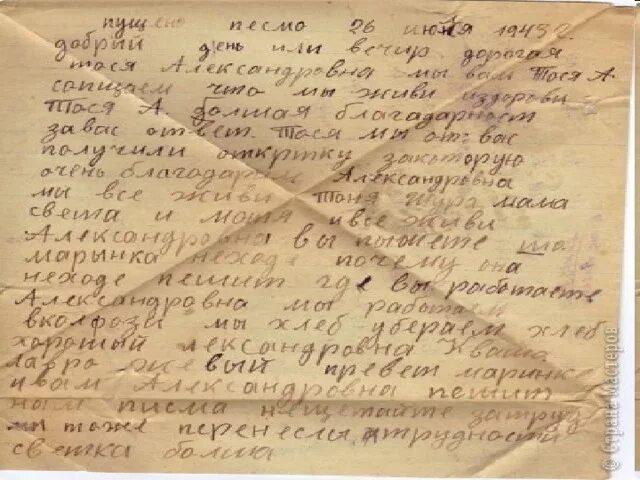 пущено песмо 26 июня 1943 г.
добрый день или вечир дорогая
тося Александровна мы вам Тося А.
сопщаем что мы живи издорови
Тося А. болшая благадарност
завас ответ. Тося мы от вас
получили откртку закоторую
очень благодарим Александровна
мы все живи Тоня Шура мама
света и мотя ивсе живи
Александровна вы пышете што
марынка неходе почему она
неходе пешит где вы работаете
Александровна мы работаем
вколхози мы хлеб убераем хлеб
хороший лександровна Кваша
лавро живый превет маринке
ивам Александровна пешит
нам писма нещетайте затруд
мы тоже перенеслы трудности
светка болша
© Страна Мастеров